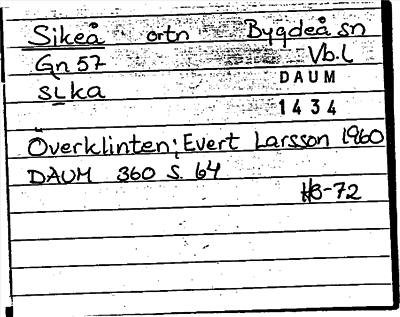 Sikeå ortn Bygdeå sn
Gn 57 Vb.l
sika DAUM
1434
Överklinten; Evert Larsson 1960
DAUM 360 S. 64
HB-72